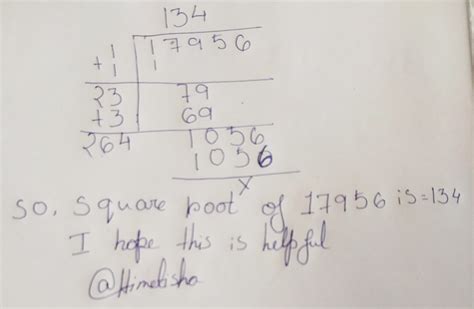 134
1 17956
+1 1
23 79
+3 69
264 1056
1056
x
so, square root of 17956 is=134
I hope this is helpful
@Himabisha